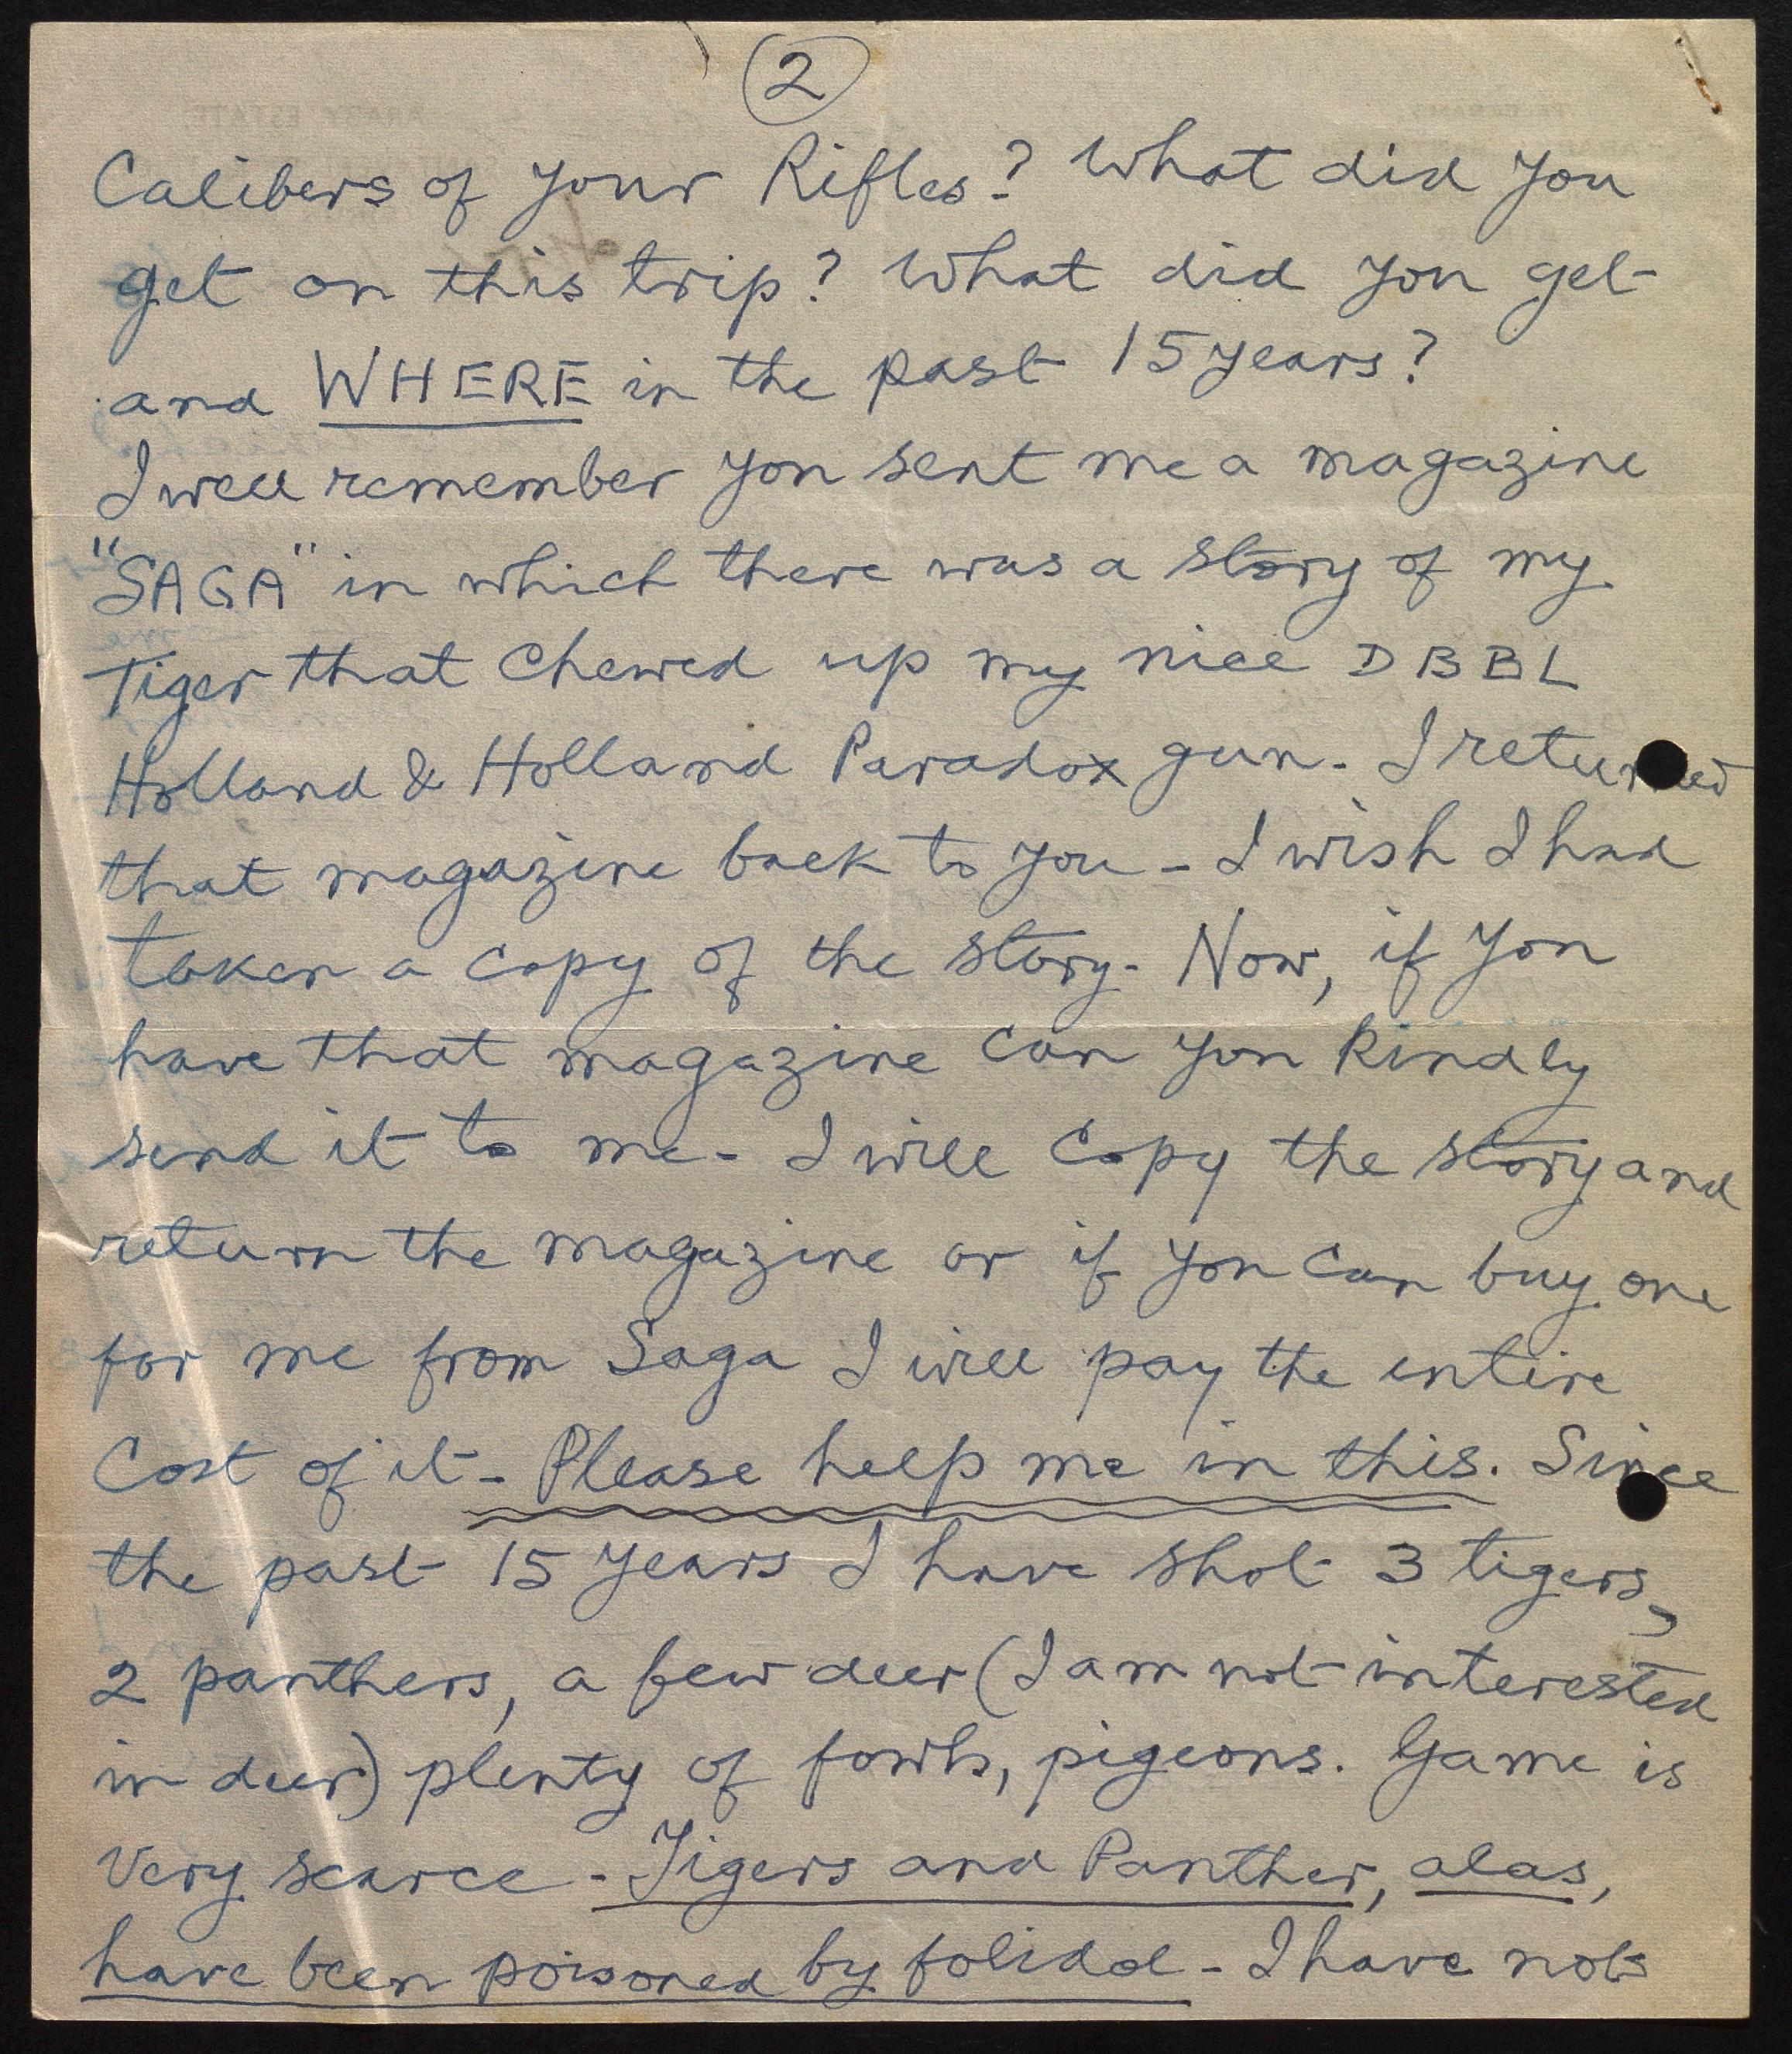 2
Calibers of your Rifles? What did you
get on this trip? What did you get
and WHERE in the past 15 years?
I well remember you sent me a magazine
"SAGA" in which there was a story of my
Tiger that chewed up my nice DBBL
Holland & Holland Paradox gun - I returned
that magazine back to you - I wish I had
taken a copy of the story - Now, if you
have that magazine can you kindly
send it to me - I will copy the story and
return the magazine or if you can buy one
for me from Saga I will pay the entire
cost of it - Please help me in this. Since
the past 15 years I have shot 3 tigers,
2 panthers, a few deer (I am not interested
in deer) plenty of fowls, pigeons. Game is
very scarce - Tigers and Panther, alas,
have been poisoned by folidol - I have not